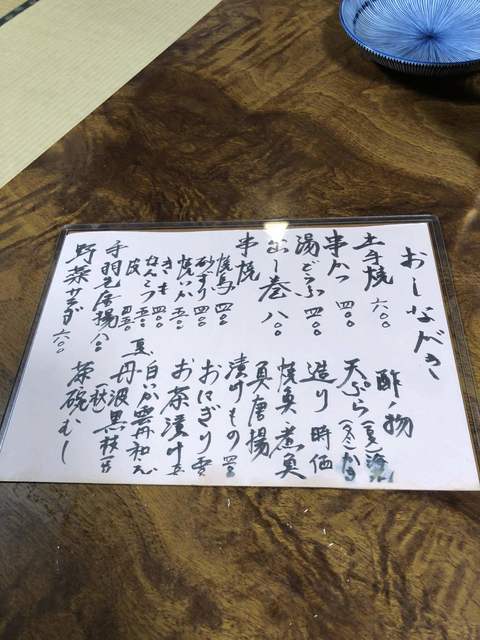 おしながき
土手焼 六〇〇
串かつ 四〇〇
湯どうふ 四〇〇
だし巻 八〇〇
串焼
焼鳥 四〇〇
砂ずり 四〇〇
焼いか 五〇〇
きも 四〇〇
なんこつ 四五〇
皮 四五〇
手羽先唐揚 八〇〇
野菜サラダ 六〇〇
酢物
天ぷら
造り 時価
焼魚 煮魚
真唐揚
漬けもの
おにぎり
お茶漬け
白いか雲丹和え
夏 丹波黒枝豆
(秋)
茶碗むし